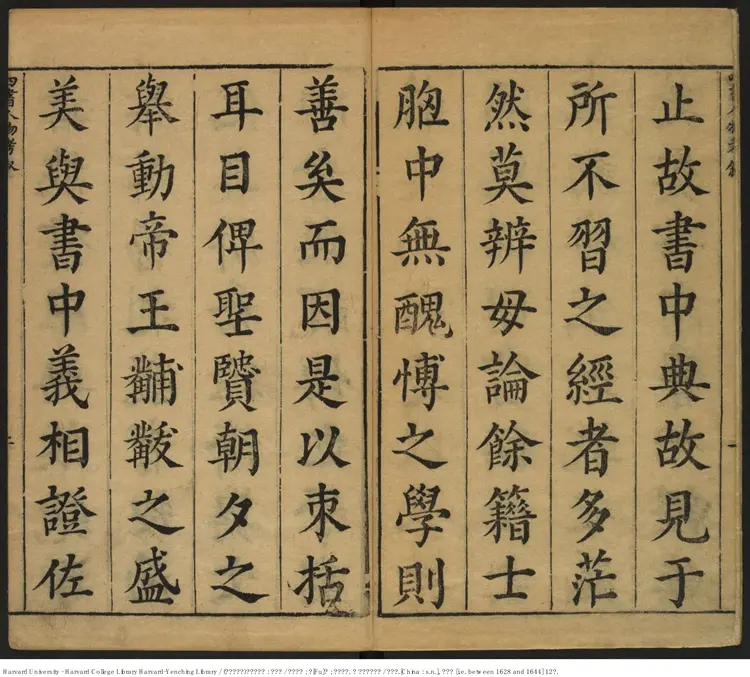 止故書中典故見于
所不習之經者多茫
然莫辨毋論餘籍士
胞中無醜愽之學則
善矣而因是以束括
耳目俾聖贒朝夕之
舉動帝王黼黻之盛
美與書中義相證佐
四書人物考叙
Harvard University - Harvard College Library Harvard-Yenching Library / (??????)????? : ??? / ???? ; ?[Fu]? ; ????. ? ?????? / ???.[China : s.n.], ??? [i.e. between 1628 and 1644] 12?.